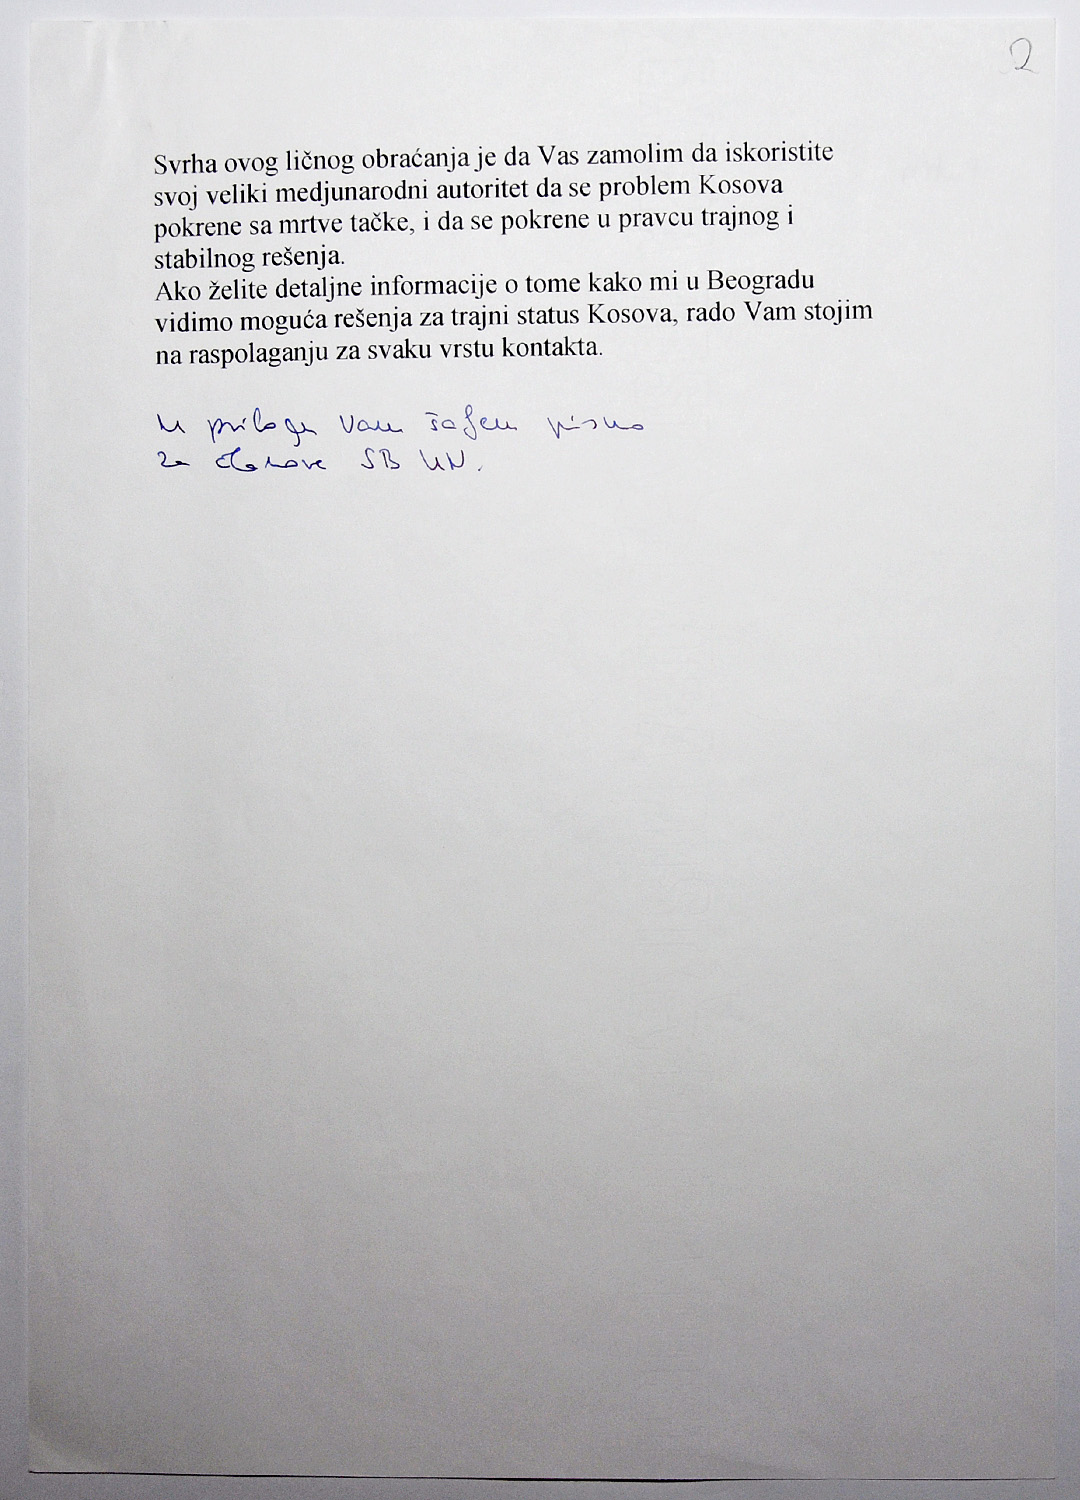 2
Svrha ovog ličnog obraćanja je da Vas zamolim da iskoristite
svoj veliki medjunarodni autoritet da se problem Kosova
pokrene sa mrtve tačke, i da se pokrene u pravcu trajnog i
stabilnog rešenja.
Ako želite detaljne informacije o tome kako mi u Beogradu
vidimo moguća rešenja za trajni status Kosova, rado Vam stojim
na raspolaganju za svaku vrstu kontakta.
U prilogu Vam šaljem pismo
za članove SB UN.